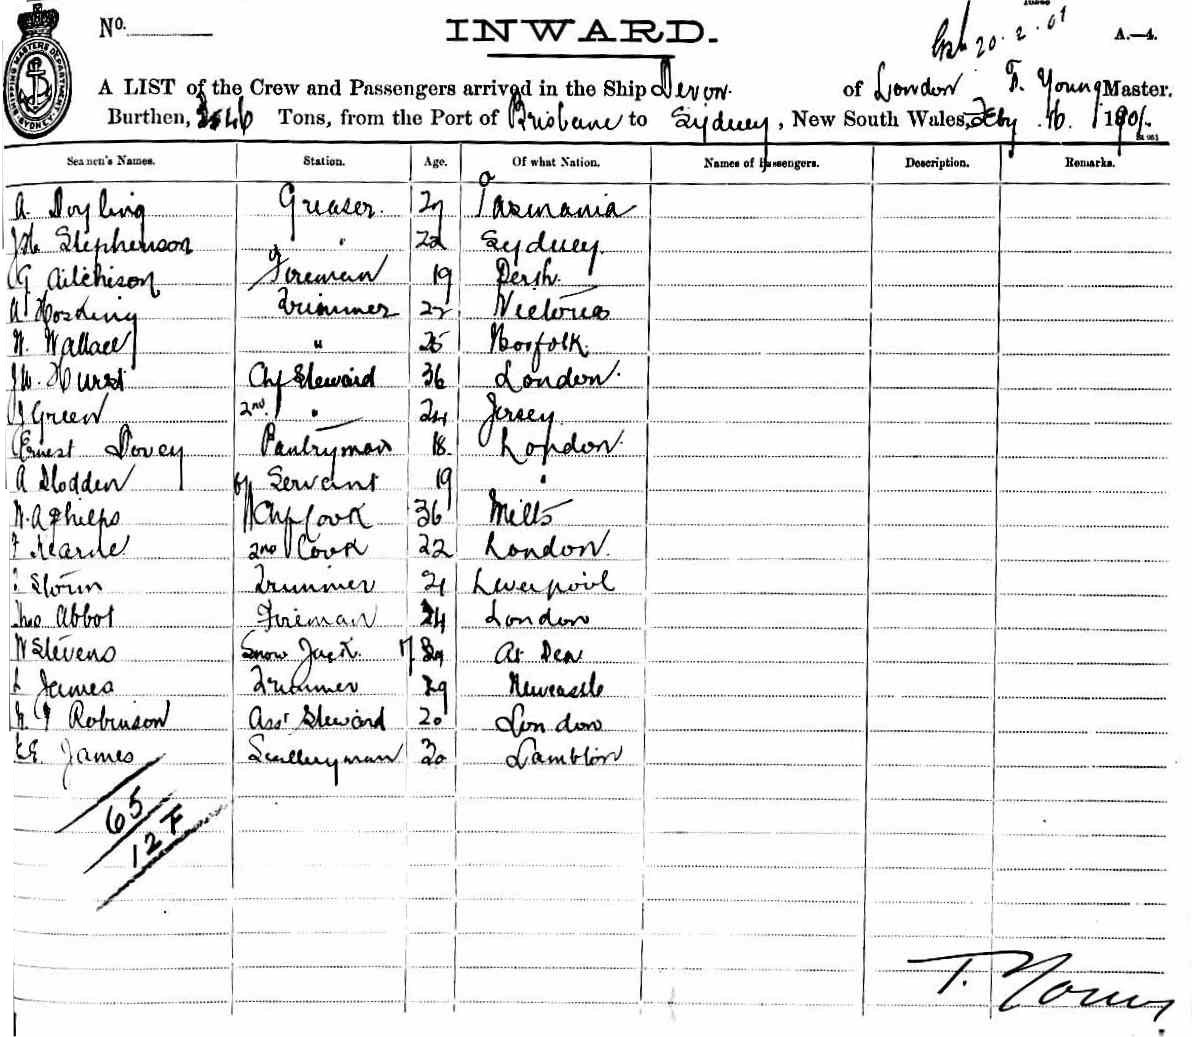 No.
INWARD.
20.2.01
A.—4.
SHIPPING MASTERS DEPARTMENT SYDNEY
A LIST of the Crew and Passengers arrived in the Ship Devon. of London T. Young Master.
Burthen, Tons, from the Port of Brisbane to Sydney, New South Wales, Feby 16. 1901.
Seamen's Names. Station. Age. Of what Nation. Names of Passengers. Description. Remarks.
A. Doyling Greaser. 27 Tasmania
Stephenson " 22 Sydney.
G Aitchison Fireman 19 Perth.
A Hosking Trimmer 22 Victoria
W. Wallace " 25 Norfolk.
J.W. Hurst Chf Steward 36 London.
J Green 2nd " 24 Jersey
Ernest Dovey Pantryman 18. London.
A Servant 19 "
W. A Phelps Chf Cook 36 Wilts
2nd Cook 22 London.
Storm Trimmer 21 Liverpool
Thos Abbot Fireman 24 London
W Stevens At Sea
James Trimmer Newcastle
Robinson Asst Steward 20 London
James Sculleryman 30 Lambton
65
12 F
T. Young